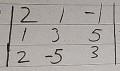 | 2 1 -1 |
| 1 3 5 |
| 2 -5 3 |